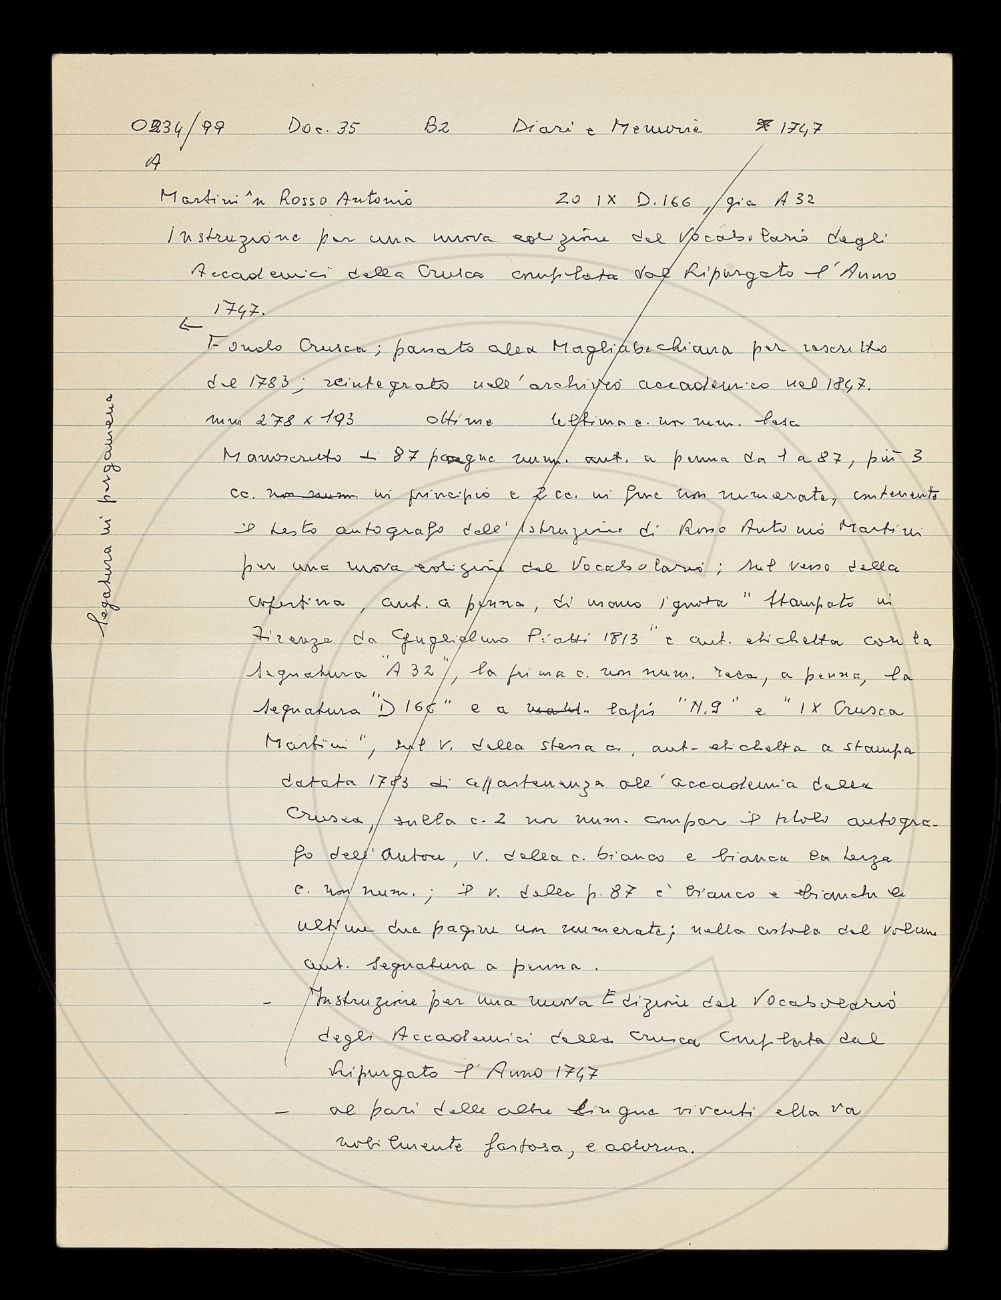 0234/99 Doc. 35 B2 Diari e Memorie 1747
A
Martini Rosso Antonio 20 IX D.166, già A 32
Instruzione per una nuova edizione del Vocabolario degli
Accademici della Crusca compilata dal Ripurgato l'Anno
1747.
Fondo Crusca; passato alla Magliabechiana per rescritto
del 1783; reintegrato nell'archivio accademico nel 1847.
mm 278 x 193 ottimo Ultima c. non num. lesa
Manoscritto di 87 pagine num. aut. a penna da 1 a 87, più 3
cc. non num. in principio e 2 cc. in fine non numerate, contenente
il testo autografo dell'Istruzione di Rosso Antonio Martini
per una nuova edizione del Vocabolario; sul verso della
copertina, aut. a penna, di mano ignota "Stampato in
Firenze da Guglielmo Piatti 1813" e aut. etichetta con la
segnatura "A 32", la prima c. non num. reca, a penna, la
segnatura "D 166" e a lapis "N.9" e "IX Crusca
Martini", sul v. della stessa c., aut. etichetta a stampa
datata 1783 di appartenenza all'accademia della
Crusca, sulla c. 2 non num. compare il titolo autogra-
fo dell'Autore, v. della c. bianco e bianca la terza
c. non num.; il v. della p. 87 è bianco e bianche le
ultime due pagine non numerate; nella costola del volume
aut. segnatura a penna.
- Instruzione per una nuova Edizione del Vocabolario
degli Accademici della Crusca Compilata dal
Ripurgato l'Anno 1747
- al pari delle altre lingue viventi ella va
nobilmente fastosa, e adorna.
legatura in pergamena